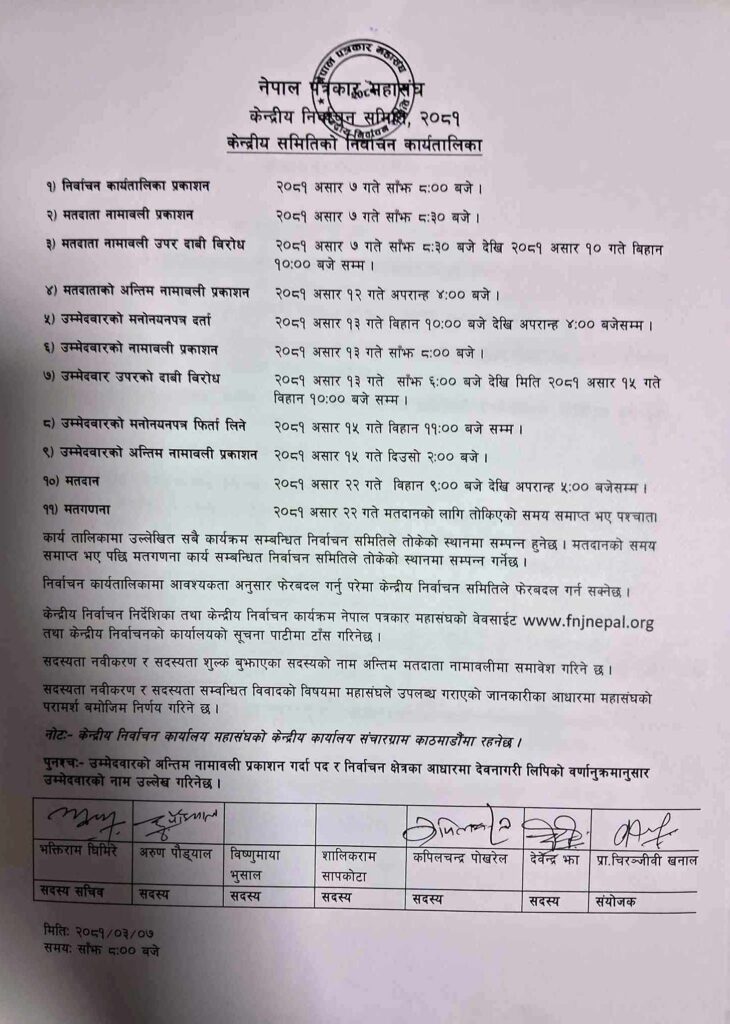 नेपाल पत्रकार महासंघ
केन्द्रीय निर्वाचन समिति, २०८१
केन्द्रीय समितिको निर्वाचन कार्यतालिका
१) निर्वाचन कार्यतालिका प्रकाशन २०८१ असार ७ गते साँझ ८:०० बजे ।
२) मतदाता नामावली प्रकाशन २०८१ असार ७ गते साँझ ८:३० बजे ।
३) मतदाता नामावली उपर दाबी विरोध २०८१ असार ७ गते साँझ ८:३० बजे देखि २०८१ असार १० गते बिहान
१०:०० बजे सम्म ।
४) मतदाताको अन्तिम नामावली प्रकाशन २०८१ असार १२ गते अपरान्ह ४:०० बजे ।
५) उम्मेदवारको मनोनयनपत्र दर्ता २०८१ असार १३ गते विहान १०:०० बजे देखि अपरान्ह ४:०० बजेसम्म ।
६) उम्मेदवारको नामावली प्रकाशन २०८१ असार १३ गते साँझ ८:०० बजे ।
७) उम्मेदवार उपरको दाबी विरोध २०८१ असार १३ गते साँझ ६:०० बजे देखि मिति २०८१ असार १५ गते
विहान १०:०० बजे सम्म ।
८) उम्मेदवारको मनोनयनपत्र फिर्ता लिने २०८१ असार १५ गते विहान ११:०० बजे सम्म ।
९) उम्मेदवारको अन्तिम नामावली प्रकाशन २०८१ असार १५ गते दिउसो २:०० बजे ।
१०) मतदान २०८१ असार २२ गते विहान ९:०० बजे देखि अपरान्ह ५:०० बजेसम्म ।
११) मतगणना २०८१ असार २२ गते मतदानको लागि तोकिएको समय समाप्त भए पश्चात।
कार्य तालिकामा उल्लेखित सबै कार्यक्रम सम्बन्धित निर्वाचन समितिले तोकेको स्थानमा सम्पन्न हुनेछ । मतदानको समय
समाप्त भए पछि मतगणना कार्य सम्बन्धित निर्वाचन समितिले तोकेको स्थानमा सम्पन्न गर्नेछ ।
निर्वाचन कार्यतालिकामा आवश्यकता अनुसार फेरबदल गर्नु परेमा केन्द्रीय निर्वाचन समितिले फेरबदल गर्न सक्नेछ ।
केन्द्रीय निर्वाचन निर्देशिका तथा केन्द्रीय निर्वाचन कार्यक्रम नेपाल पत्रकार महासंघको वेवसाईट www.fnjnepal.org
तथा केन्द्रीय निर्वाचनको कार्यालयको सूचना पाटीमा टाँस गरिनेछ ।
सदस्यता नवीकरण र सदस्यता शुल्क बुझाएका सदस्यको नाम अन्तिम मतदाता नामावलीमा समावेश गरिने छ ।
सदस्यता नवीकरण र सदस्यता सम्वन्धित विवादको विषयमा महासंघले उपलब्ध गराएको जानकारीका आधारमा महासंघको
परामर्श बमोजिम निर्णय गरिने छ ।
नोटः- केन्द्रीय निर्वाचन कार्यालय महासंघको केन्द्रीय कार्यालय संचारग्राम काठमाडौंमा रहनेछ ।
पुनश्चः- उम्मेदवारको अन्तिम नामावली प्रकाशन गर्दा पद र निर्वाचन क्षेत्रका आधारमा देवनागरी लिपिको वर्णानुक्रमानुसार
उम्मेदवारको नाम उल्लेख गरिनेछ ।
भक्तिराम घिमिरे अरुण पौड्याल विष्णुमाया शालिकराम कपिलचन्द्र पोखरेल देवेन्द्र झा प्रा.चिरञ्जीवी खनाल
भुसाल सापकोटा
सदस्य सचिव सदस्य सदस्य सदस्य सदस्य सदस्य संयोजक
मितिः २०८१/०३/०७
समयः साँझ ८:०० बजे